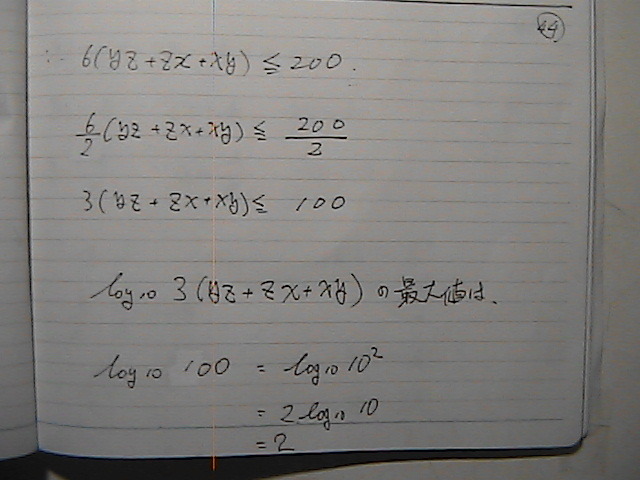 44
∴ 6(yz+zx+xy) ≦ 200.
6/2 (yz+zx+xy) ≦ 200/2
3(yz+zx+xy) ≦ 100
log₁₀ 3(yz+zx+xy) の最大値は、
log₁₀ 100 = log₁₀ 10²
= 2 log₁₀ 10
= 2